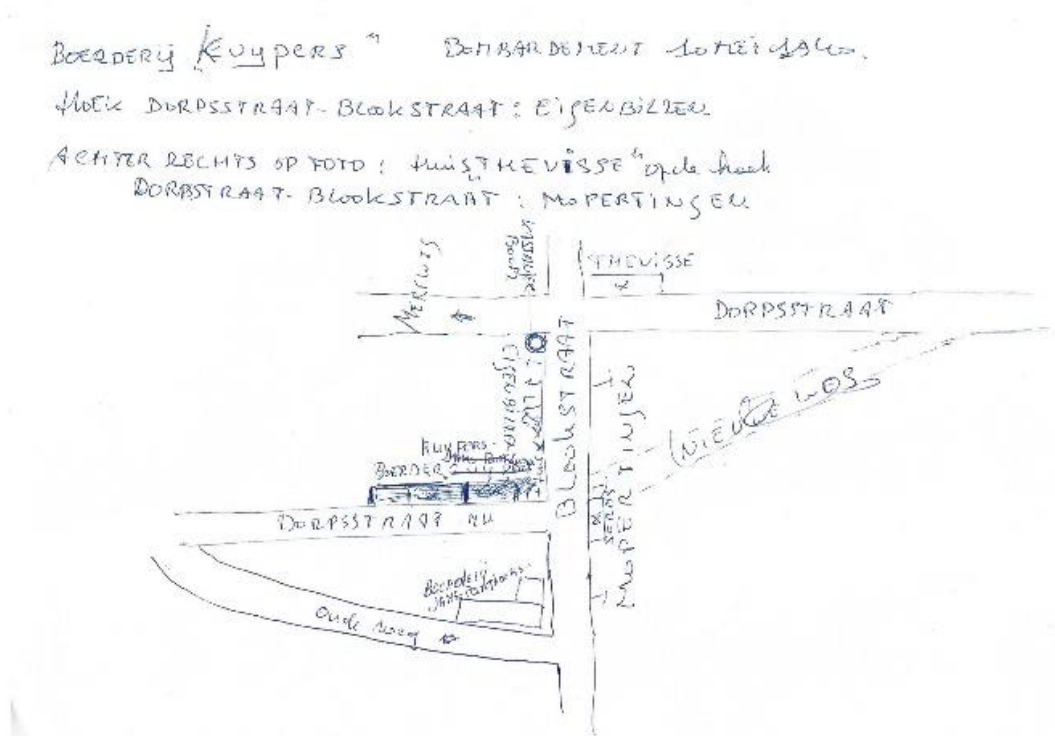 BOERDERIJ KUYPERS" BOMBARDEMENT 10 MEI 1940.
HOEK DORPSSTRAAT-BLOOKSTRAAT: EIGENBILZEN
ACHTER RECHTS OP FOTO: HUIS "THEVISSE" op de hoek
DORPSTRAAT-BLOOKSTRAAT: MOPERTINGEN
THEVISSE
DORPSSTRAAT
BLOOKSTRAAT
MOPERTINGEN
NIEUWE WEG
KUYPERS
BOERDERIJ
DORPSSTRAAT NU
BOERDERIJ
Oude weg